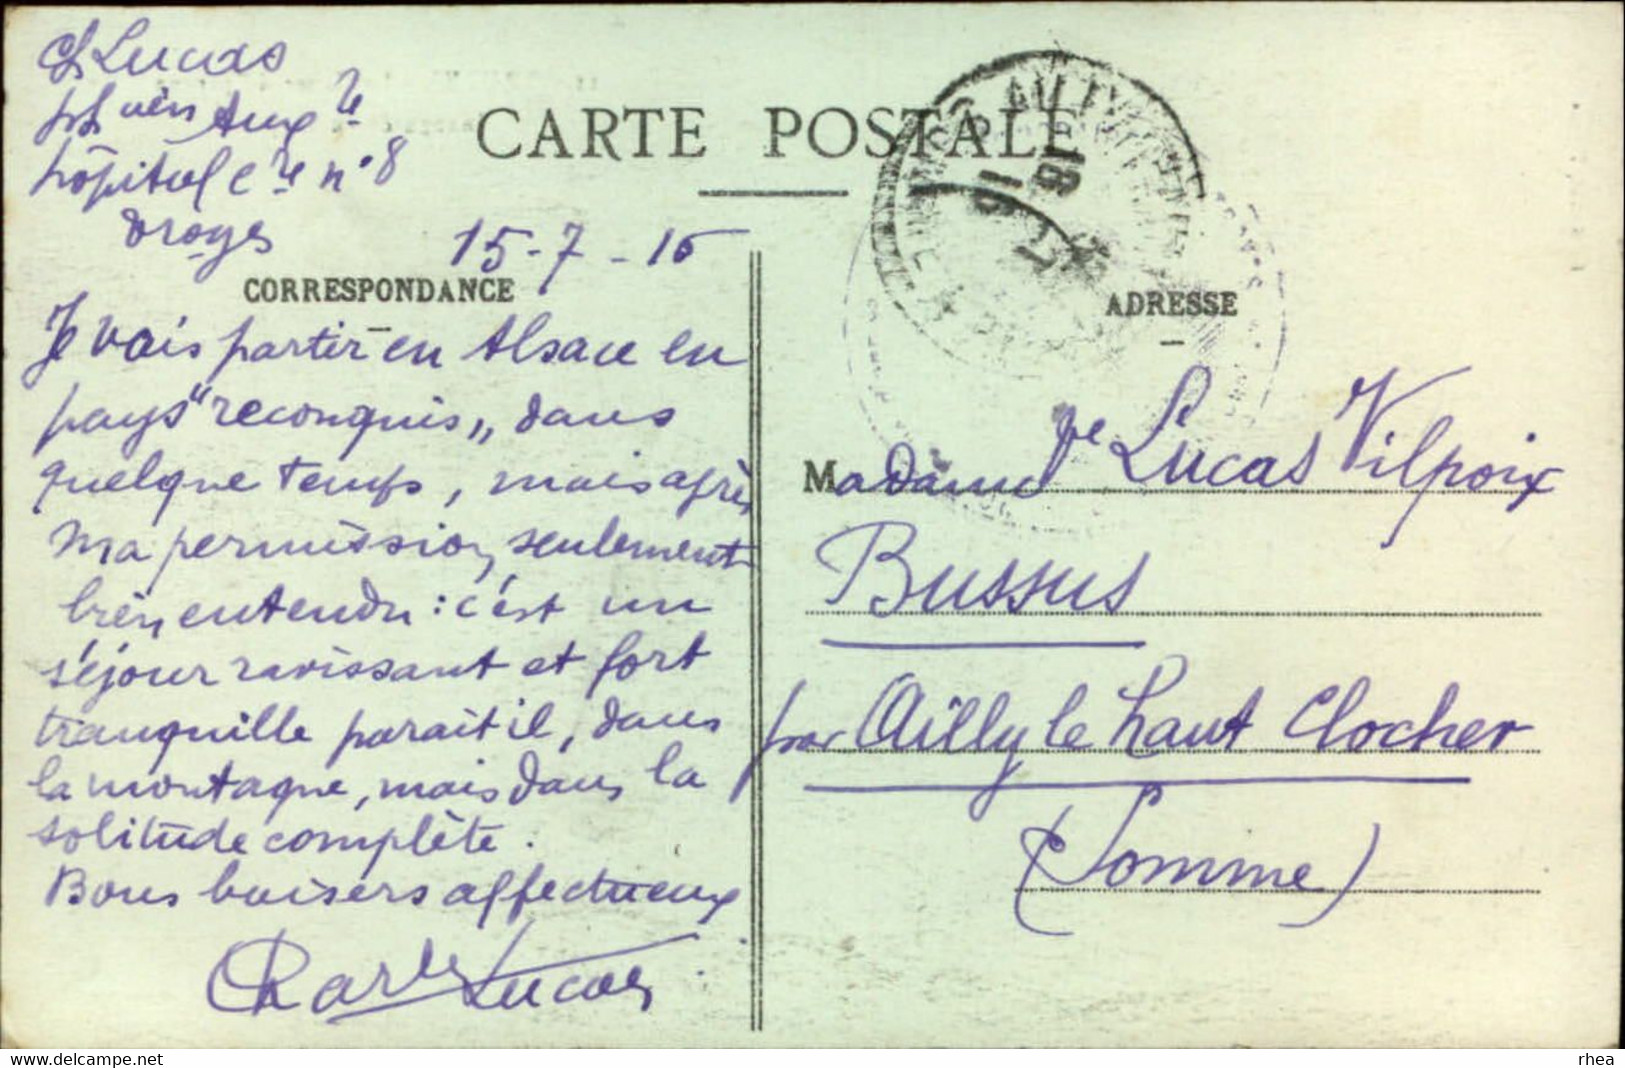 Ch Lucas
ph^cien Aux^re
hôpital C^re n° 8
Troyes
15-7-16
CARTE POSTALE
CORRESPONDANCE
Je vais partir en Alsace en
pays "reconquis„ dans
quelque temps, mais après
ma permission, seulement
bien entendu : c'est un
séjour ravissant et fort
tranquille parait il, dans
la montagne, mais dans la
solitude complète.
Bons baisers affectueux
Charles Lucas
18
7
16
ADRESSE
Madame Lucas Vilpoix
Bussus
par Ailly le haut Clocher
(Somme)
delcampe.net
rhea